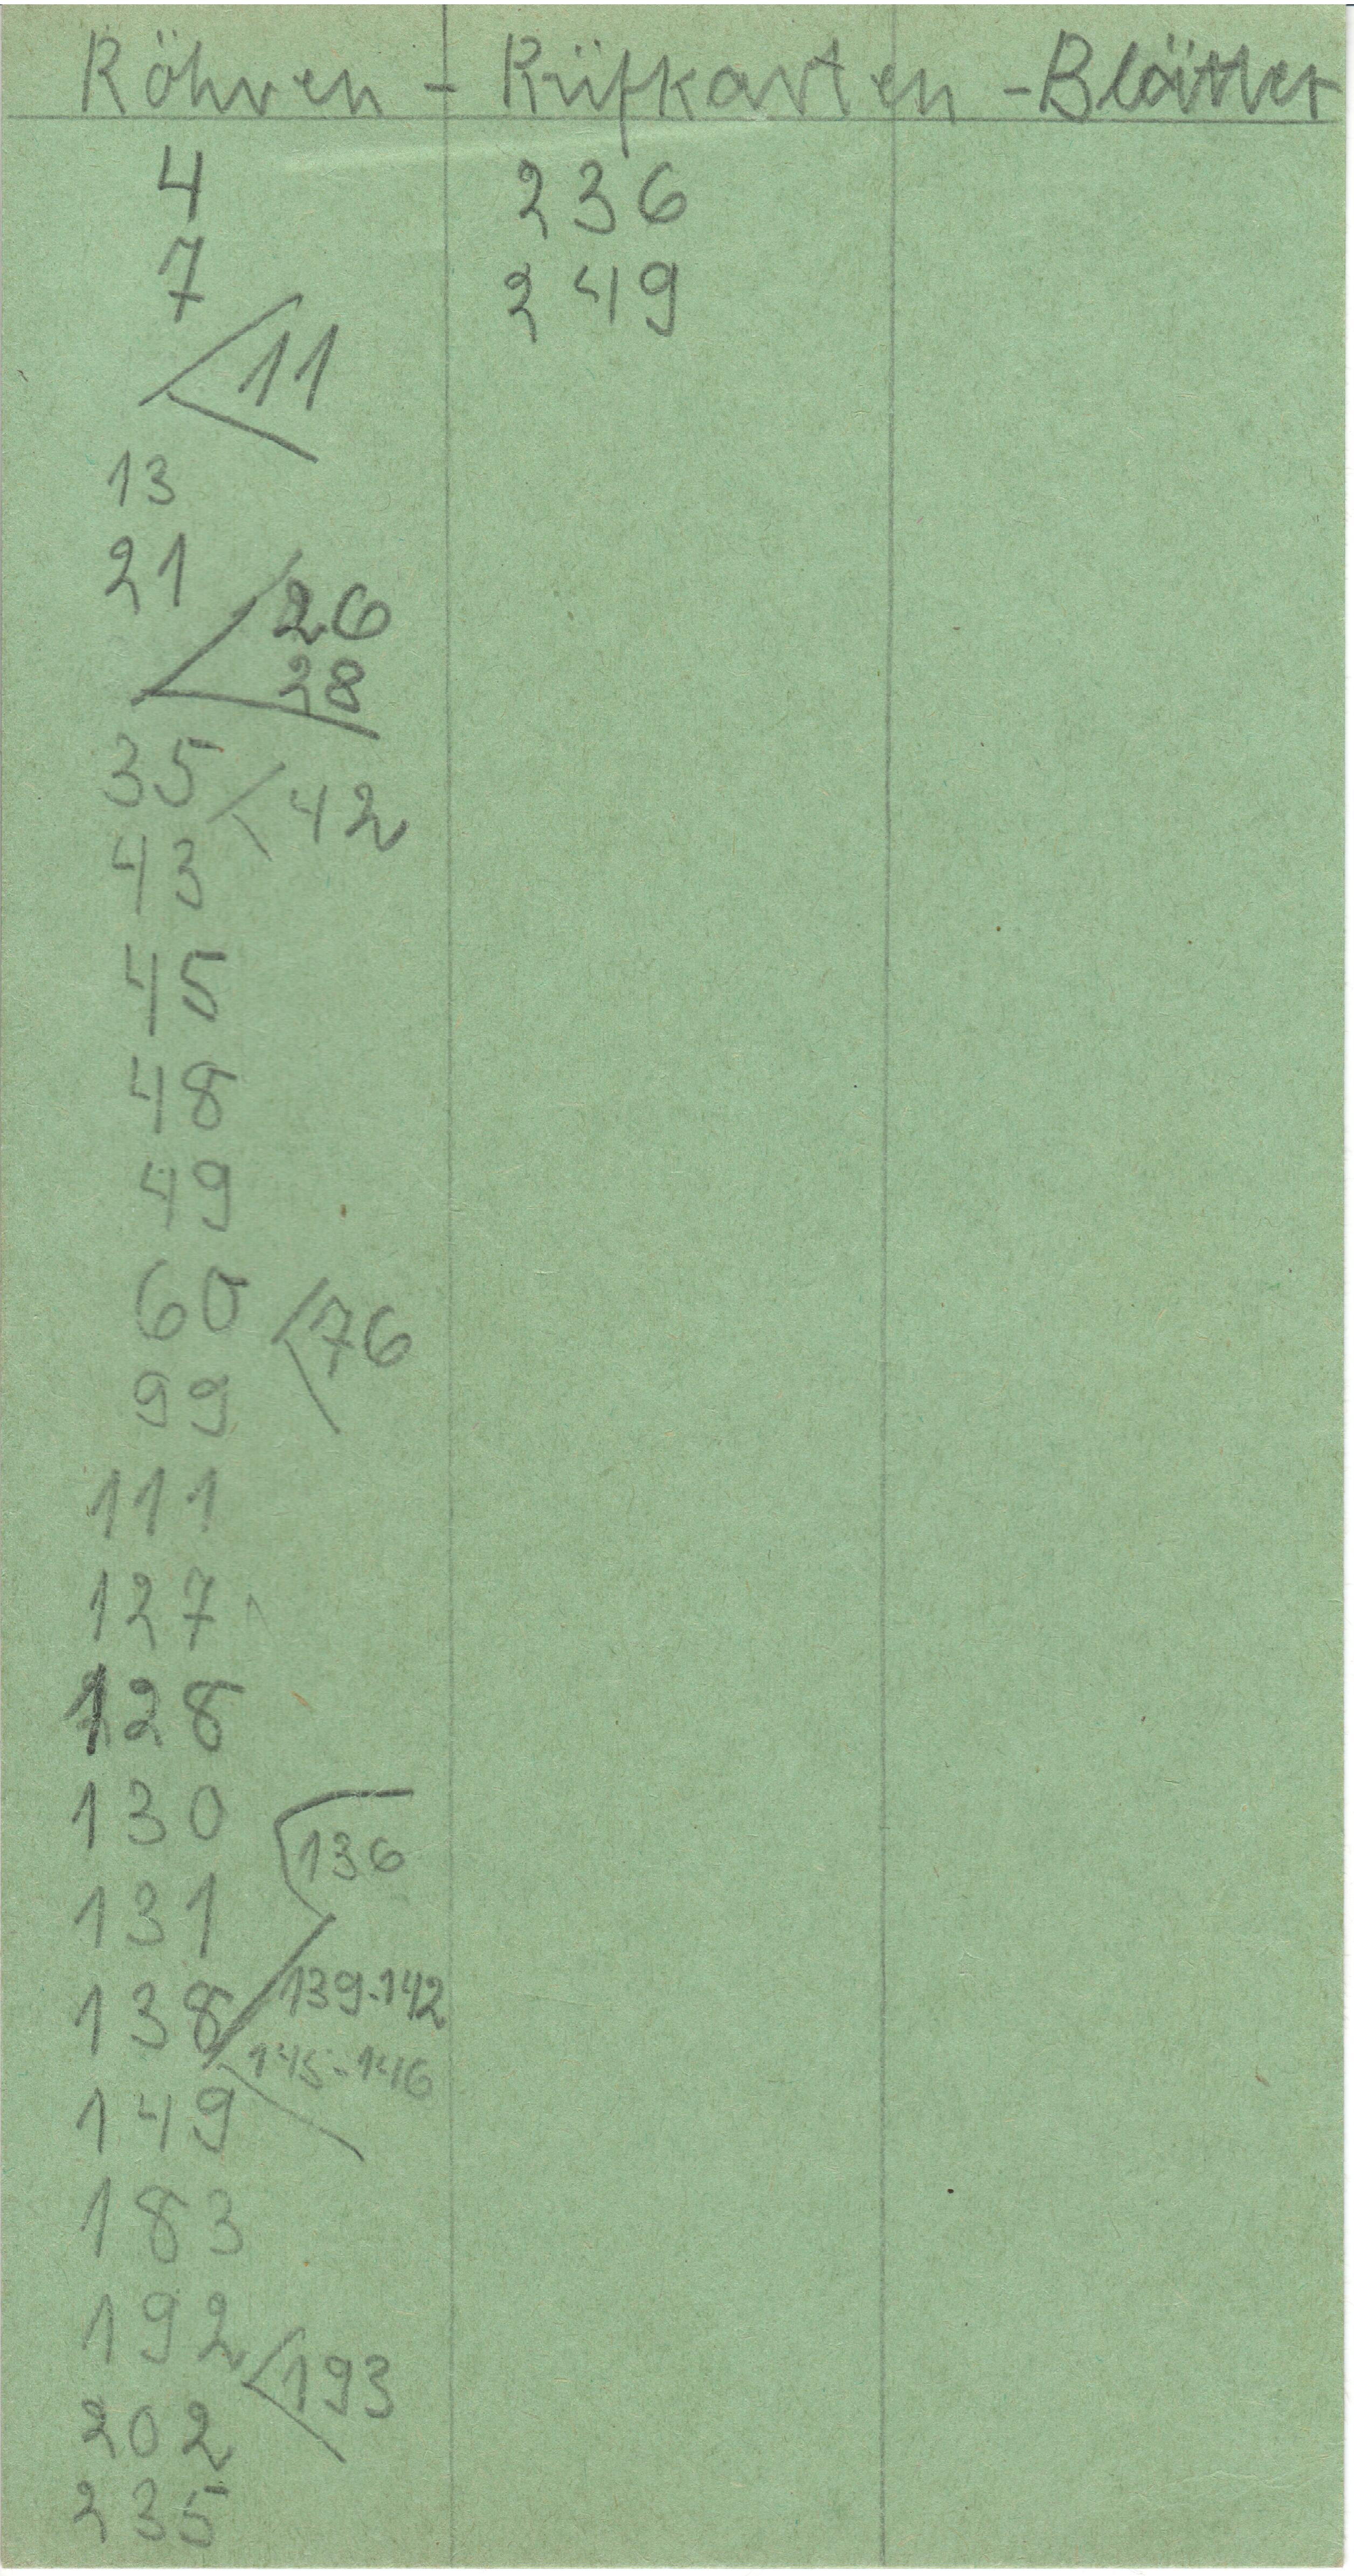 Röhren - Prüfkarten - Blätter
4 236
7 249
11
13
21
26
28
35
42
43
45
48
49
60
76
99
111
127
128
130
136
131
139-142
138
145-146
149
183
192
193
202
235